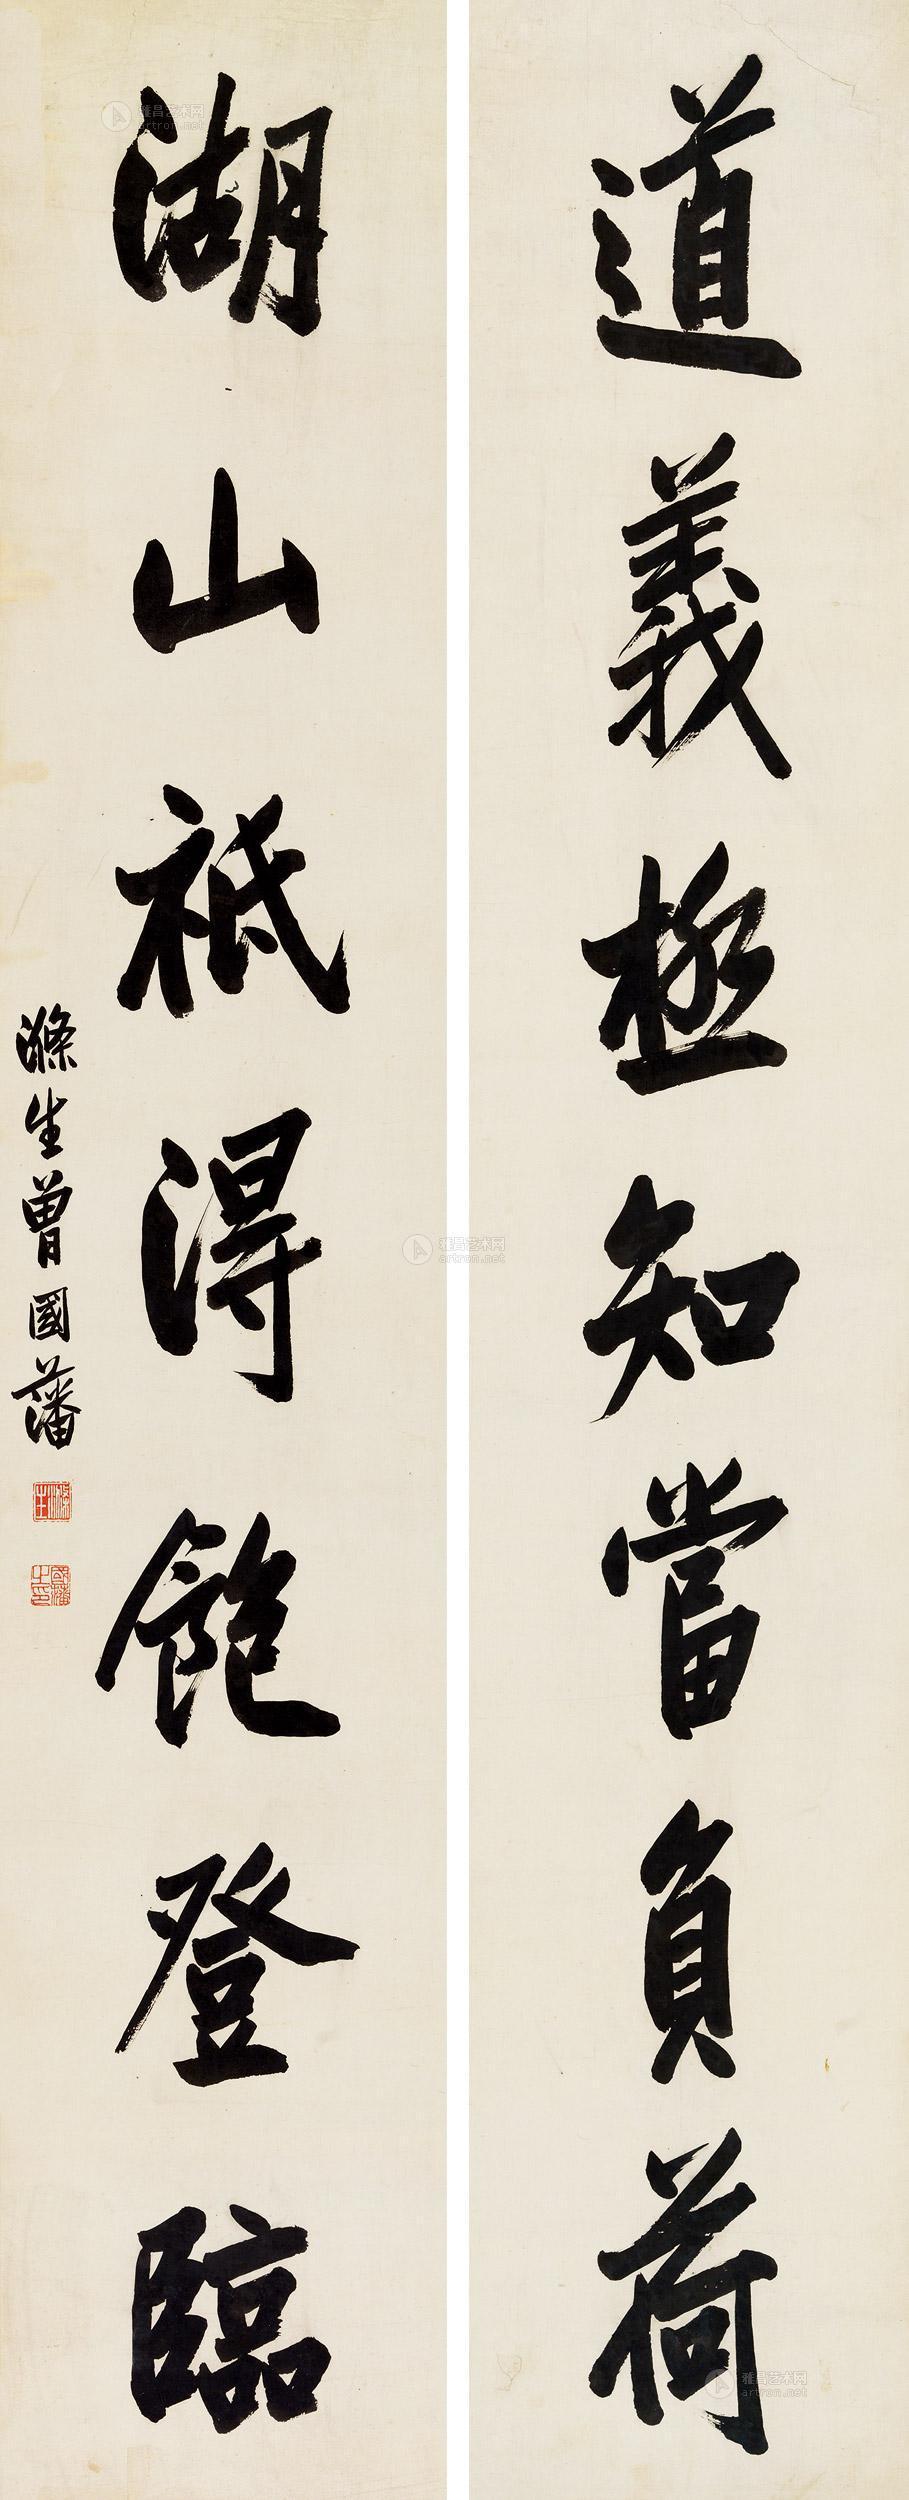 道義極知當負荷
湖山祗得飽登臨
滌生曾國藩
滌生
國藩之印
雅昌艺术网
artron.net
雅昌艺术网
artron.net
雅昌艺术网
artron.net